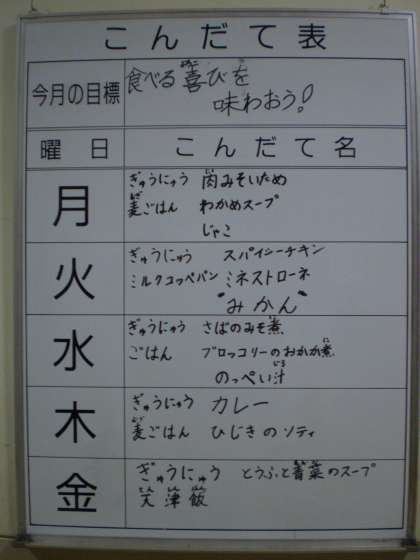 こんだて表
今月の目標
食べる喜びを
味わおう!
曜日 こんだて名
月
ぎゅうにゅう 肉みそいため
麦ごはん わかめスープ
じゃこ
火
ぎゅうにゅう スパイシーチキン
ミルクコッペパン ミネストローネ
"みかん"
水
ぎゅうにゅう さばのみそ煮
ごはん ブロッコリーのおかか煮
のっぺい汁
木
ぎゅうにゅう カレー
麦ごはん ひじきのソティ
金
ぎゅうにゅう とうふと青菜のスープ
天津飯